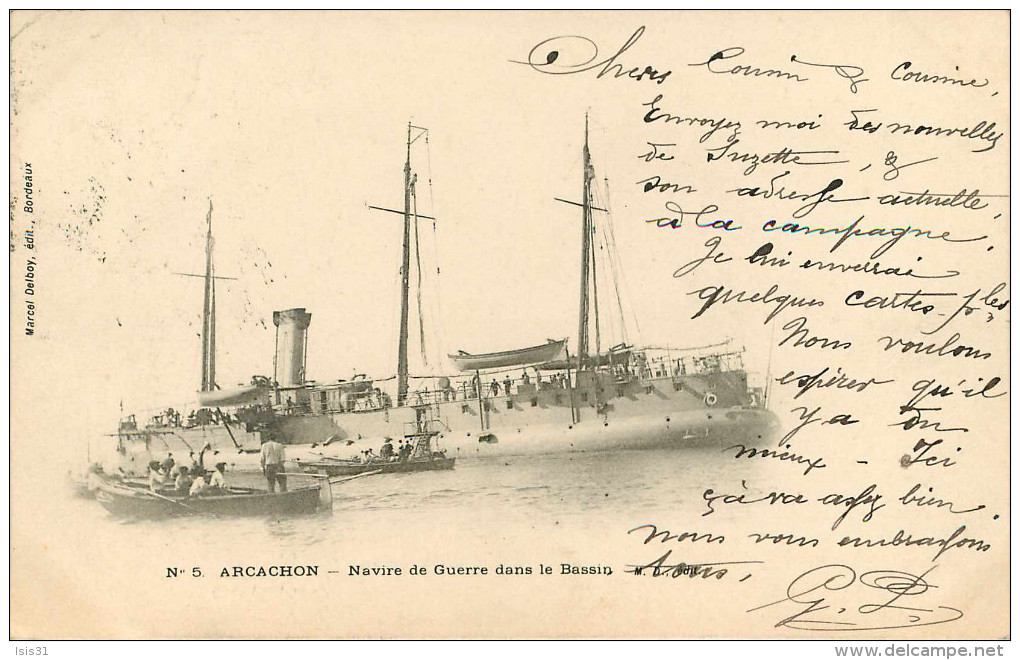 Chers Cousin & Cousine,
Envoyez moi des nouvelles
de Suzette, &
son adresse actuelle,
à la campagne.
Je lui enverrai
quelques cartes-ples
Nous voulons
espérer qu'il
y a du
mieux - Ici
çà va assez bien.
Nous vous embrassons
tous,
G. L.
Marcel Delboy, édit., Bordeaux
N° 5. ARCACHON – Navire de Guerre dans le Bassin M. D., édit.
Isis31
www.delcampe.net